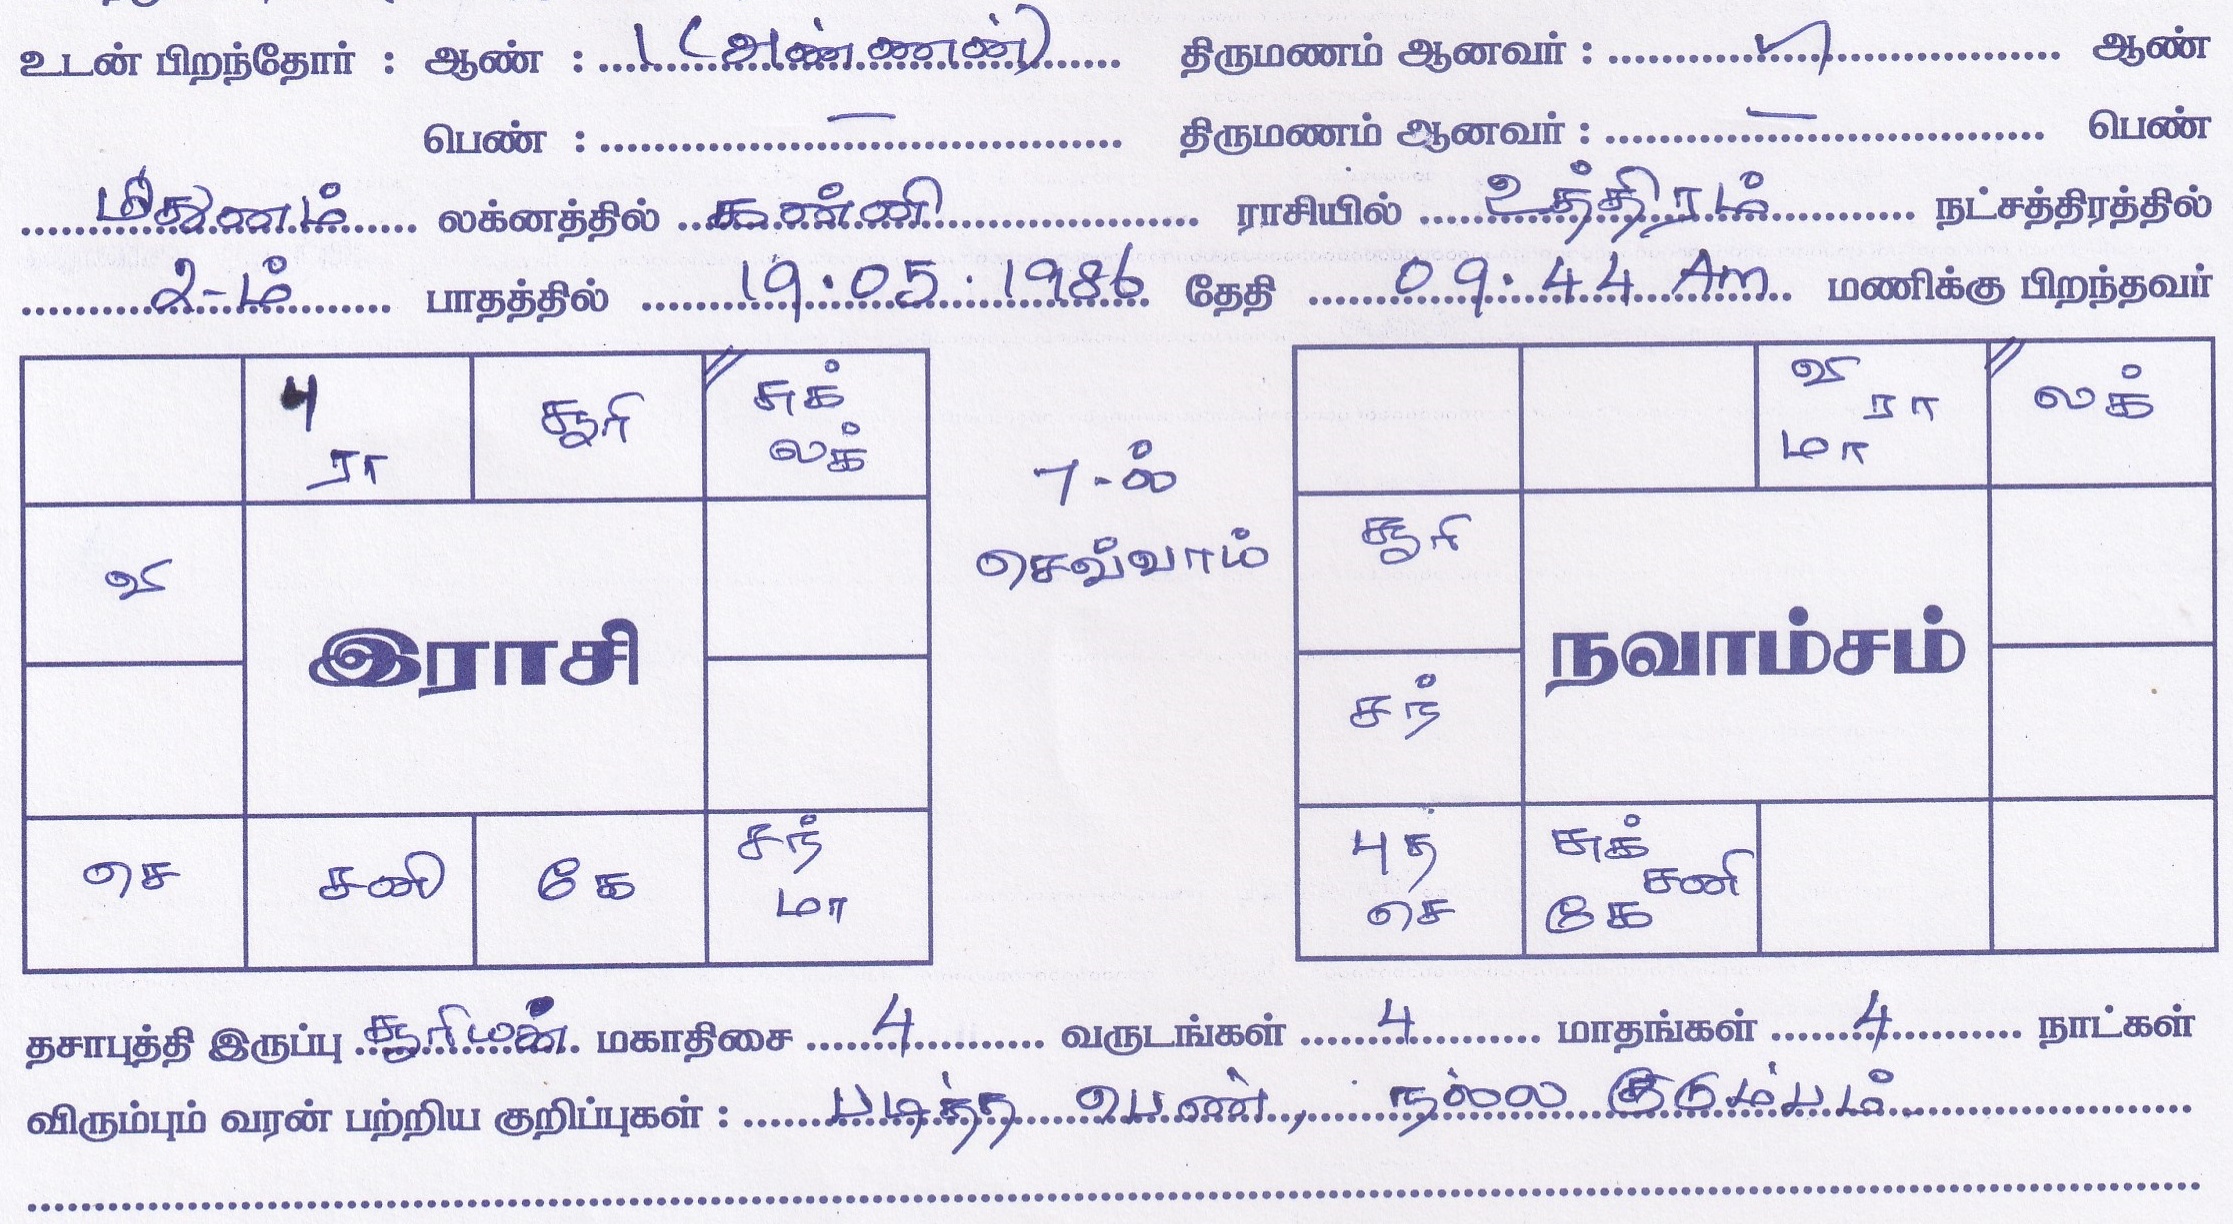 உடன் பிறந்தோர் : ஆண் : 1 (அண்ணன்) திருமணம் ஆனவர் : ஆண்
பெண் : — திருமணம் ஆனவர் : — பெண்
மிதுனம் லக்னத்தில் கன்னி ராசியில் உத்திரம் நட்சத்திரத்தில்
2-ம் பாதத்தில் 19.05.1986 தேதி 09:44 Am மணிக்கு பிறந்தவர்
பு சூரி சுக்
ரா லக்
வி
இராசி
செ சனி கே சந்
மா
7-ல்
செவ்வாய்
வி லக்
ரா
மா
சூரி
நவாம்சம்
சந்
புத சுக்
சனி
செ கே
தசாபுத்தி இருப்பு சூரியன் மகாதிசை 4 வருடங்கள் 4 மாதங்கள் 4 நாட்கள்
விரும்பும் வரன் பற்றிய குறிப்புகள் : படித்த பெண், நல்ல குடும்பம்.